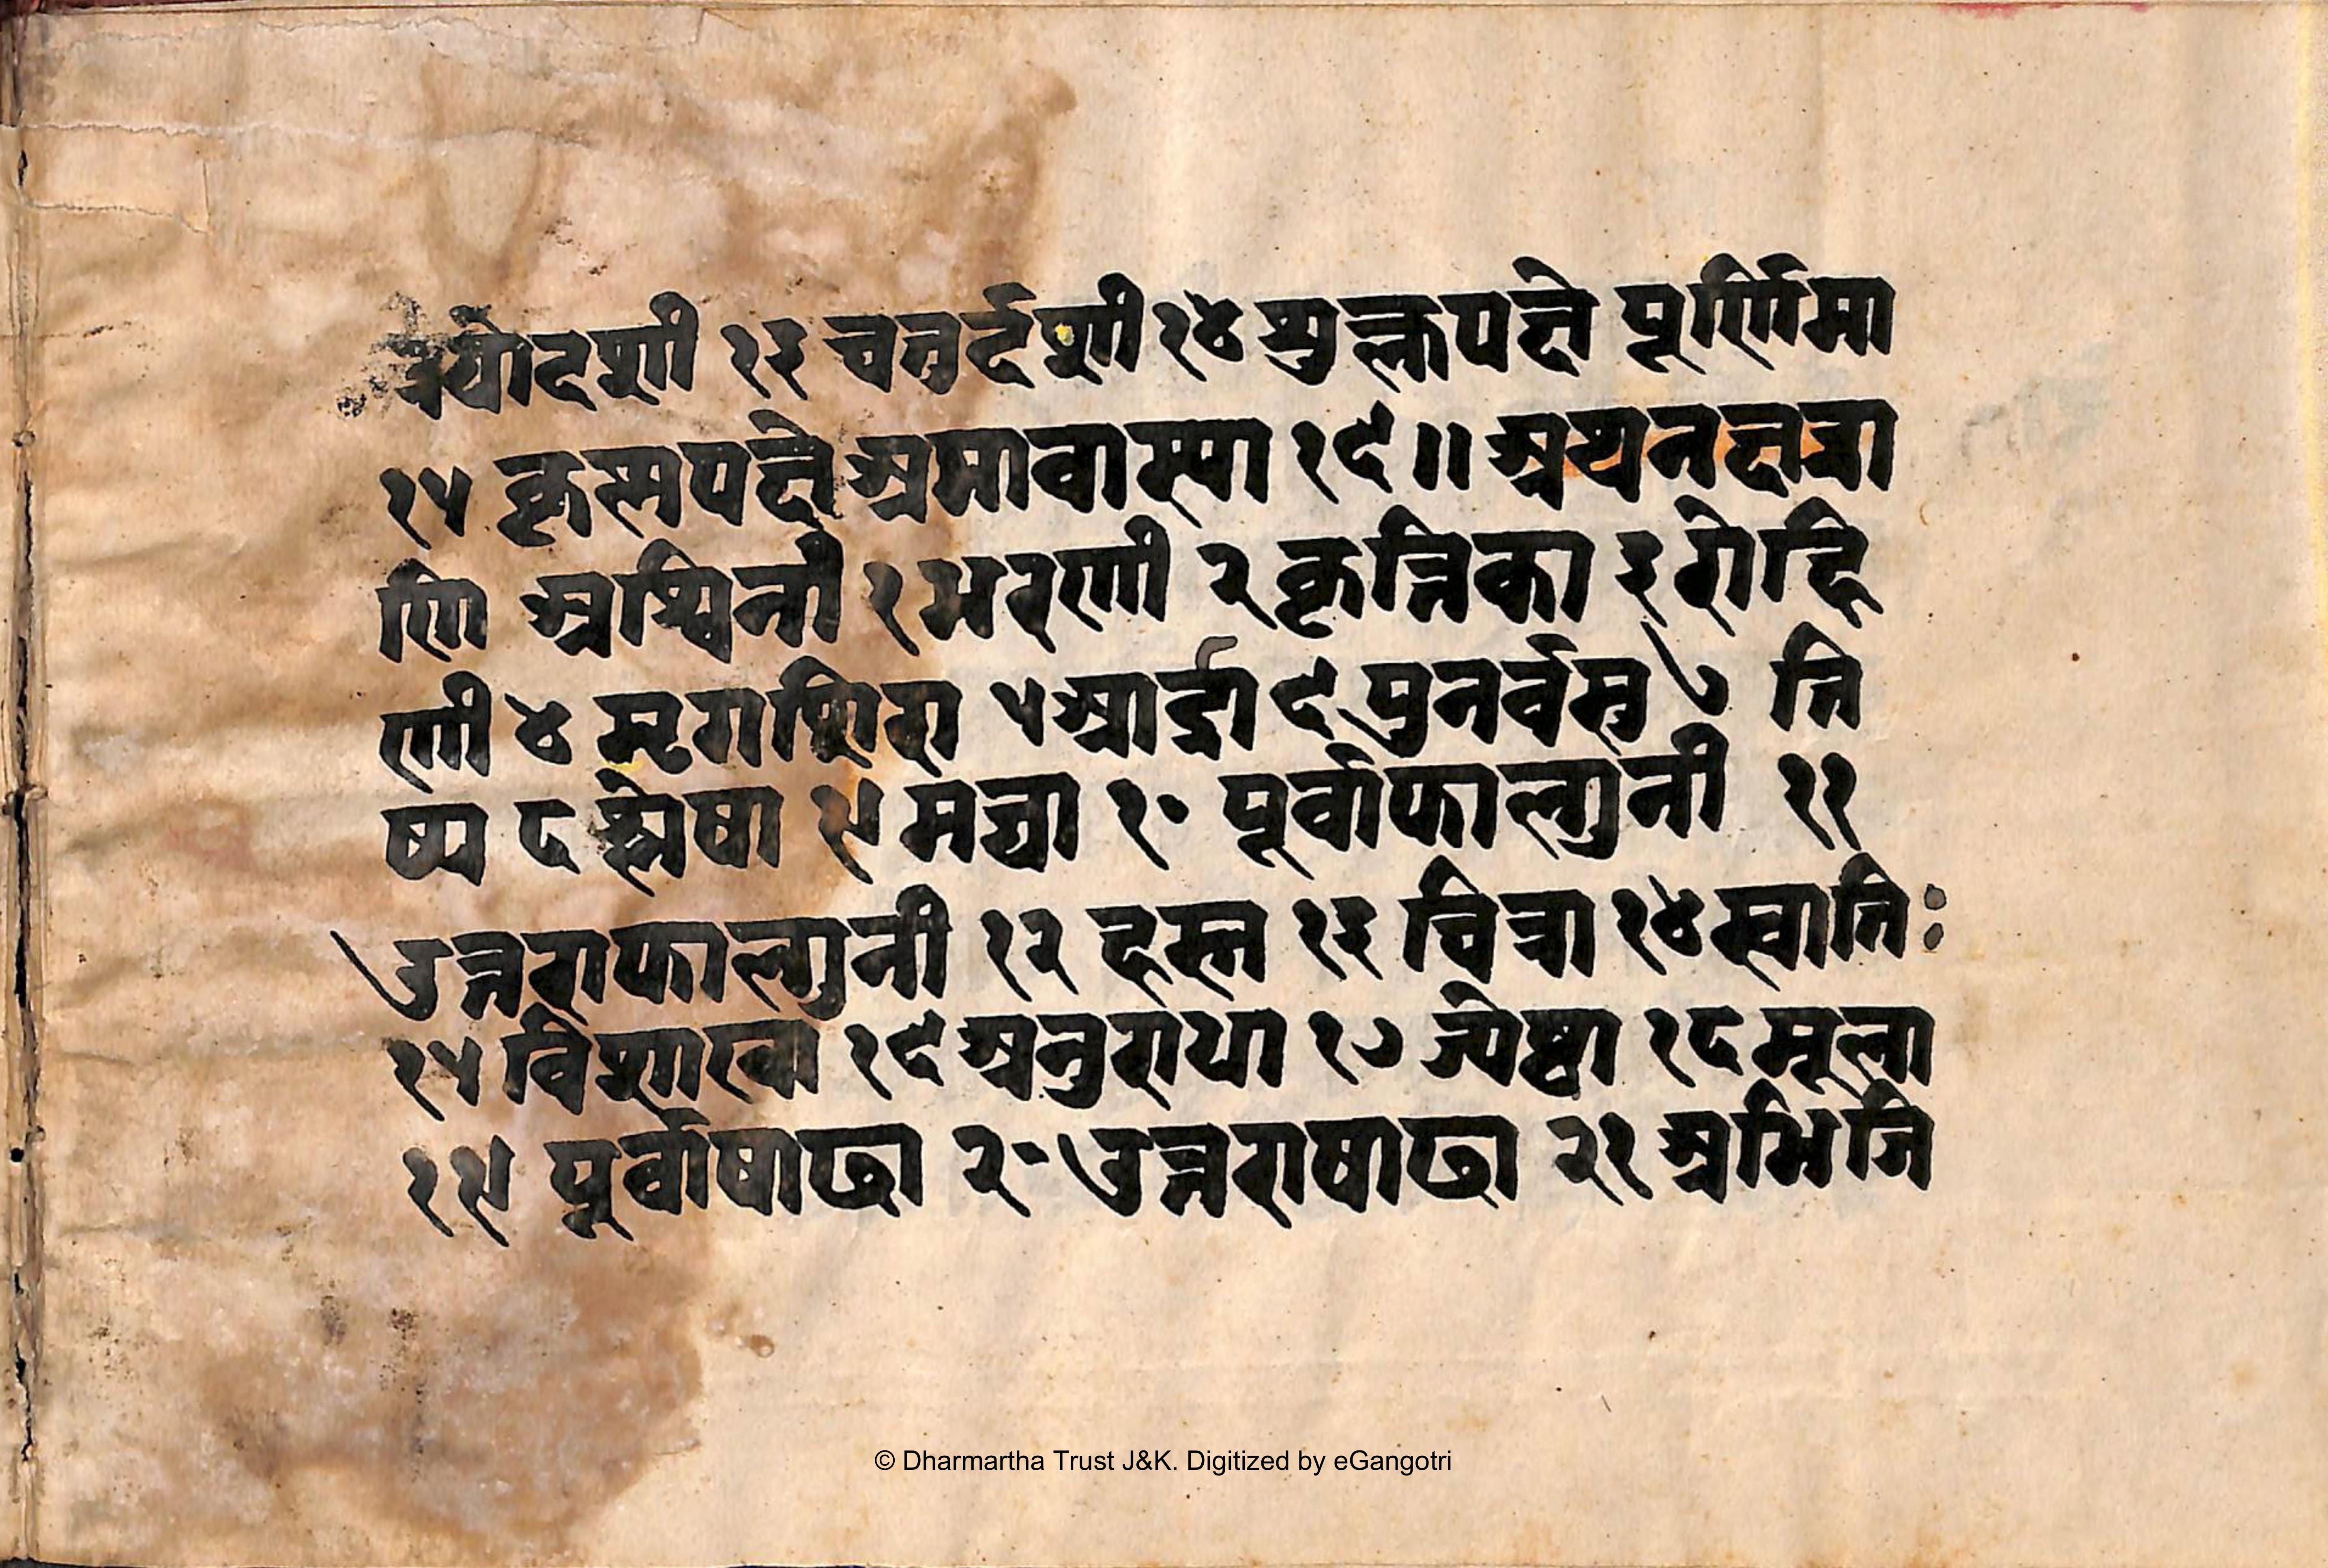 त्रयोदशी १३ चतुर्दशी १४ शुक्लपक्षे पूर्णिमा
१५ कृष्णपक्षे अमावास्या १६॥ अथनक्षत्रा
णि अश्विनी १ भरणी २ कृत्तिका ३ रोहि
णी ४ मृगशिरा ५ आर्द्रा ६ पुनर्वसु ७ ति
ष्य ८ श्लेषा ९ मघा १० पूर्वाफाल्गुनी ११
उत्तराफाल्गुनी १२ हस्त १३ चित्रा १४ स्वाति:
१५ विशाखा १६ अनुराधा १७ ज्येष्ठा १८ मूला
१९ पूर्वाषाढा २० उत्तराषाढा २१ अभिजि
© Dharmartha Trust J&K. Digitized by eGangotri